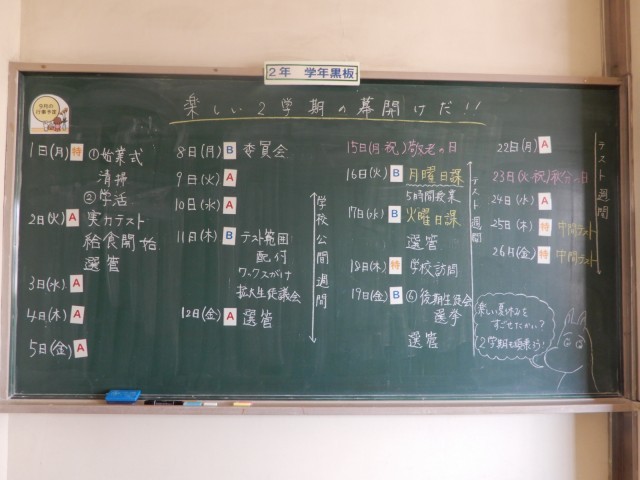 2年 学年黒板
楽しい2学期の幕開けだ!!
9月の
行事予定
1日(月) 特 ①始業式
清掃
②学活
2日(火) A 実力テスト
給食開始
選管
3日(水) A
4日(木) A
5日(金) A
8日(月) B 委員会
9日(火) A
10日(水) A
11日(木) B テスト範囲
配付
ワックスがけ
拡大生徒議会
12日(金) A 選管
学校公開週間
15日(月・祝) 敬老の日
16日(火) B 月曜日課
5時間授業
17日(水) B 火曜日課
選管
18日(木) 特 学校訪問
19日(金) B ⑥後期生徒会
選挙
選管
テスト週間
22日(月) A
23日(火・祝) 秋分の日
24日(水) A
25日(木) 特 中間テスト
26日(金) 特 中間テスト
テスト週間
楽しい夏休みを
すごせたかい?
2学期も頑張ろう!